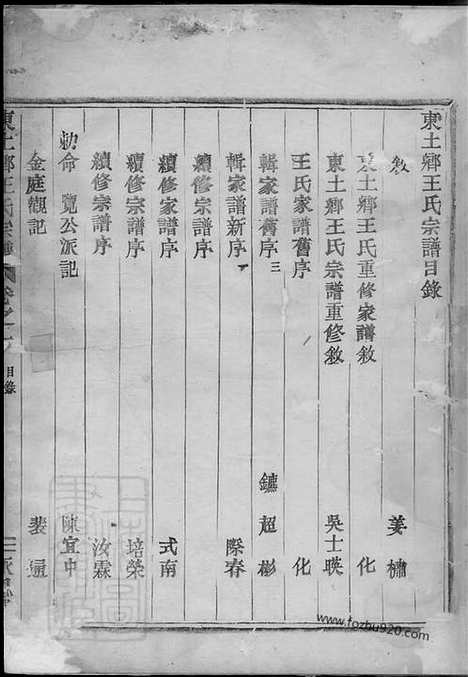 東土鄉王氏宗譜目錄
敘 姜橚
東土鄉王氏重修家譜敘 化
東土鄉王氏宗譜重修敘 吳士瑛
王氏家譜舊序 化
輯家譜舊序三 鏞 超 彬
輯家譜新序一 際春
續修宗譜序
續修家譜序 式南
續修宗譜序 培榮
續修宗譜序 汝霖
勅命 覽公派記 陳宜中
金庭觀記 裴通
東土鄉王氏宗譜 卷之一 目錄
www.fozhu920.com